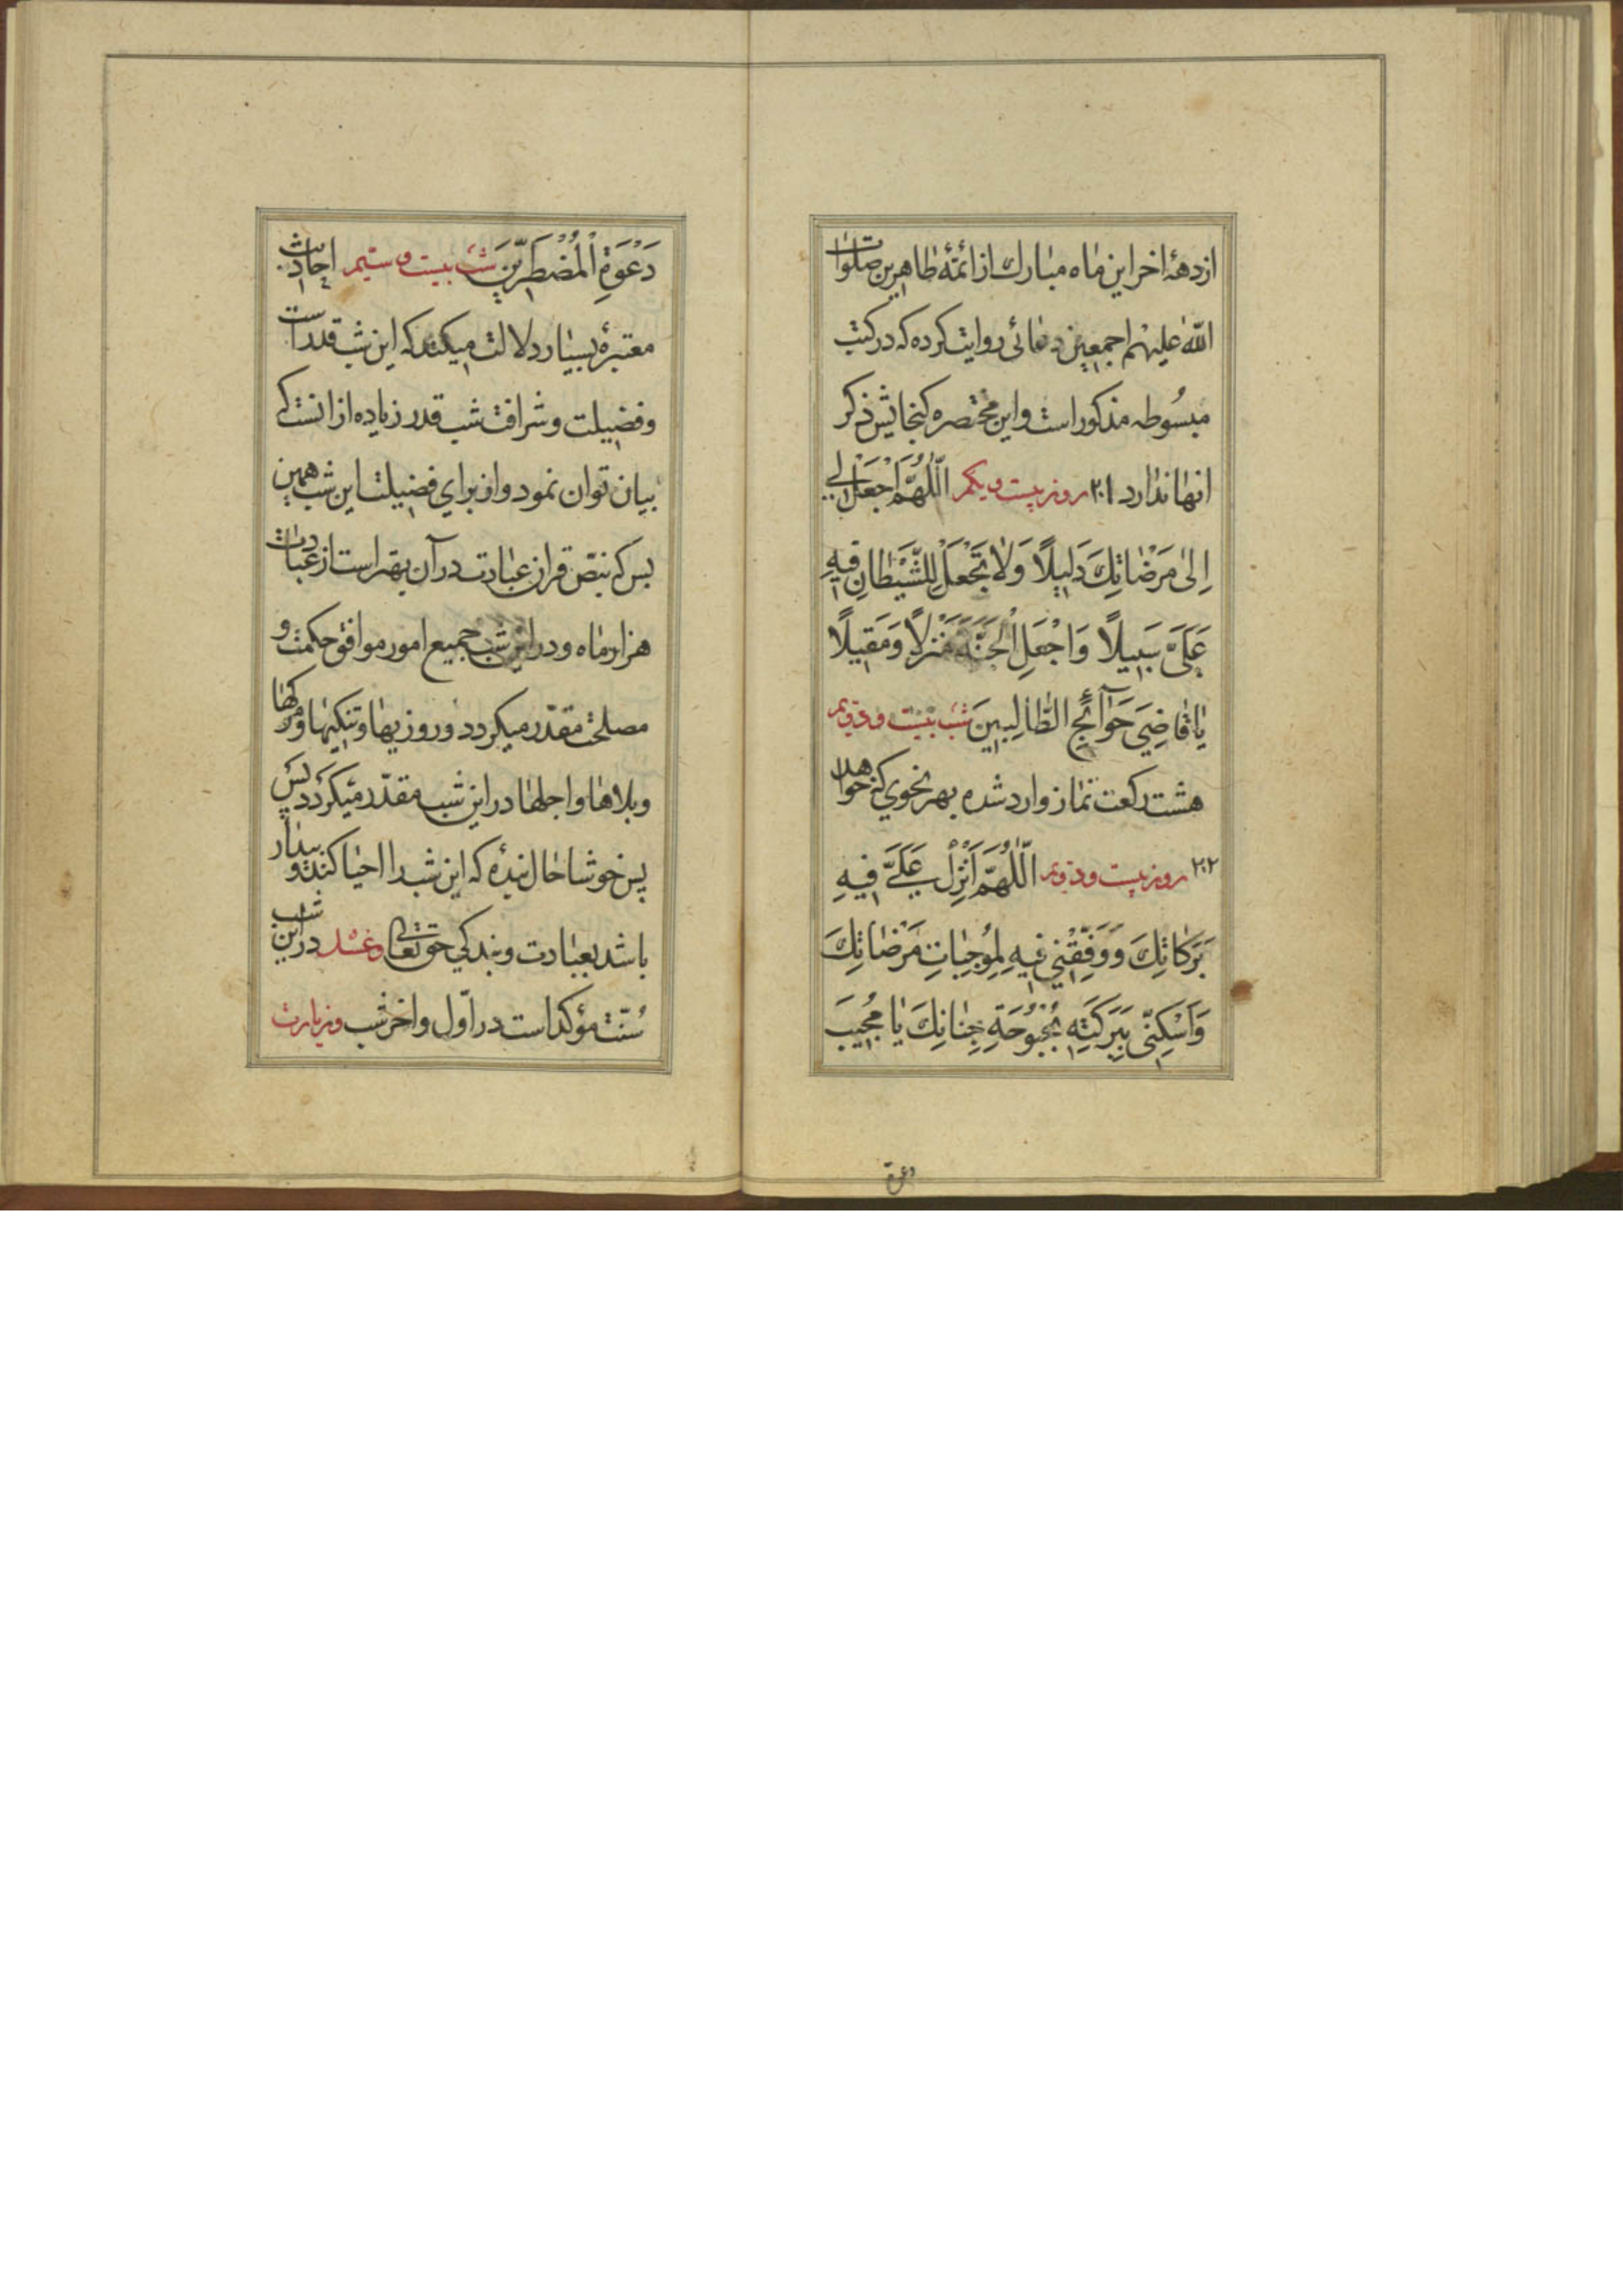 ازدههٔ اخر این ماه مبارك از ائمّهٔ طاهرین صلوات
اللّه علیهم اجمعین دعائی روایت کرده که در کتب
مبسُوطه مذکور است و این مختصره کنجایش ذکر
انها ندارد ٢٠١ روز بیست و یکم اَللّٰهُمَّ اجْعَلْ لِي
اِلیٰ مَرْضٰاتِكَ دَلِیلًا وَلٰا تَجْعَلْ لِلشَّیْطٰانِ فِیهِ
عَلَيَّ سَبِیلًا وَاجْعَلِ الْجَنَّةَ مَنْزِلًا وَمَقِیلًا
یٰا قٰاضِيَ حَوٰآئِجِ الطّٰالِبِینَ شب بیست و دویم
هشت رکعت نماز وارد شده بهر نحوي که خواهد
٢٠٢ روز بیست و دویم اَللّٰهُمَّ اَنْزِلْ عَلَيَّ فِیهِ
بَرَکٰاتِكَ وَوَفِّقْنِي فِیهِ لِمُوجِبٰاتِ مَرْضٰاتِكَ
وَاَسْکِنِّي بِبَرَکَتِهِ بُحْبُوحَةِ جِنٰانِكَ یٰا مُجِیبَ
دعوة
دَعْوَةِ الْمُضْطَرِّینَ شب بیست و سیّم احادیث
معتبرهٔ بسیار دلالت میکند که این شب قدر است
و فضیلت و شرافت شب قدر زیاده از انست که
بیان توان نمود و از براي فضیلت این شب همین
بس که بنصّ قران عبادت در آن بهتر است از عبادت
هزار ماه و در این شب جمیع امور موافق حکمت و
مصلحت مقدّر میکردد و روزیها و تنکیها و مرکها
و بلاها و اجلها در این شب مقدّر میکردد پس
پس خوشا حال بندهٔ که این شب را احیا کند و بیدار
باشد بعبادت و بندکي حق تعالی و غسل در این شب
سُنّت مؤکد است در اوّل و اخر شب و زیارت